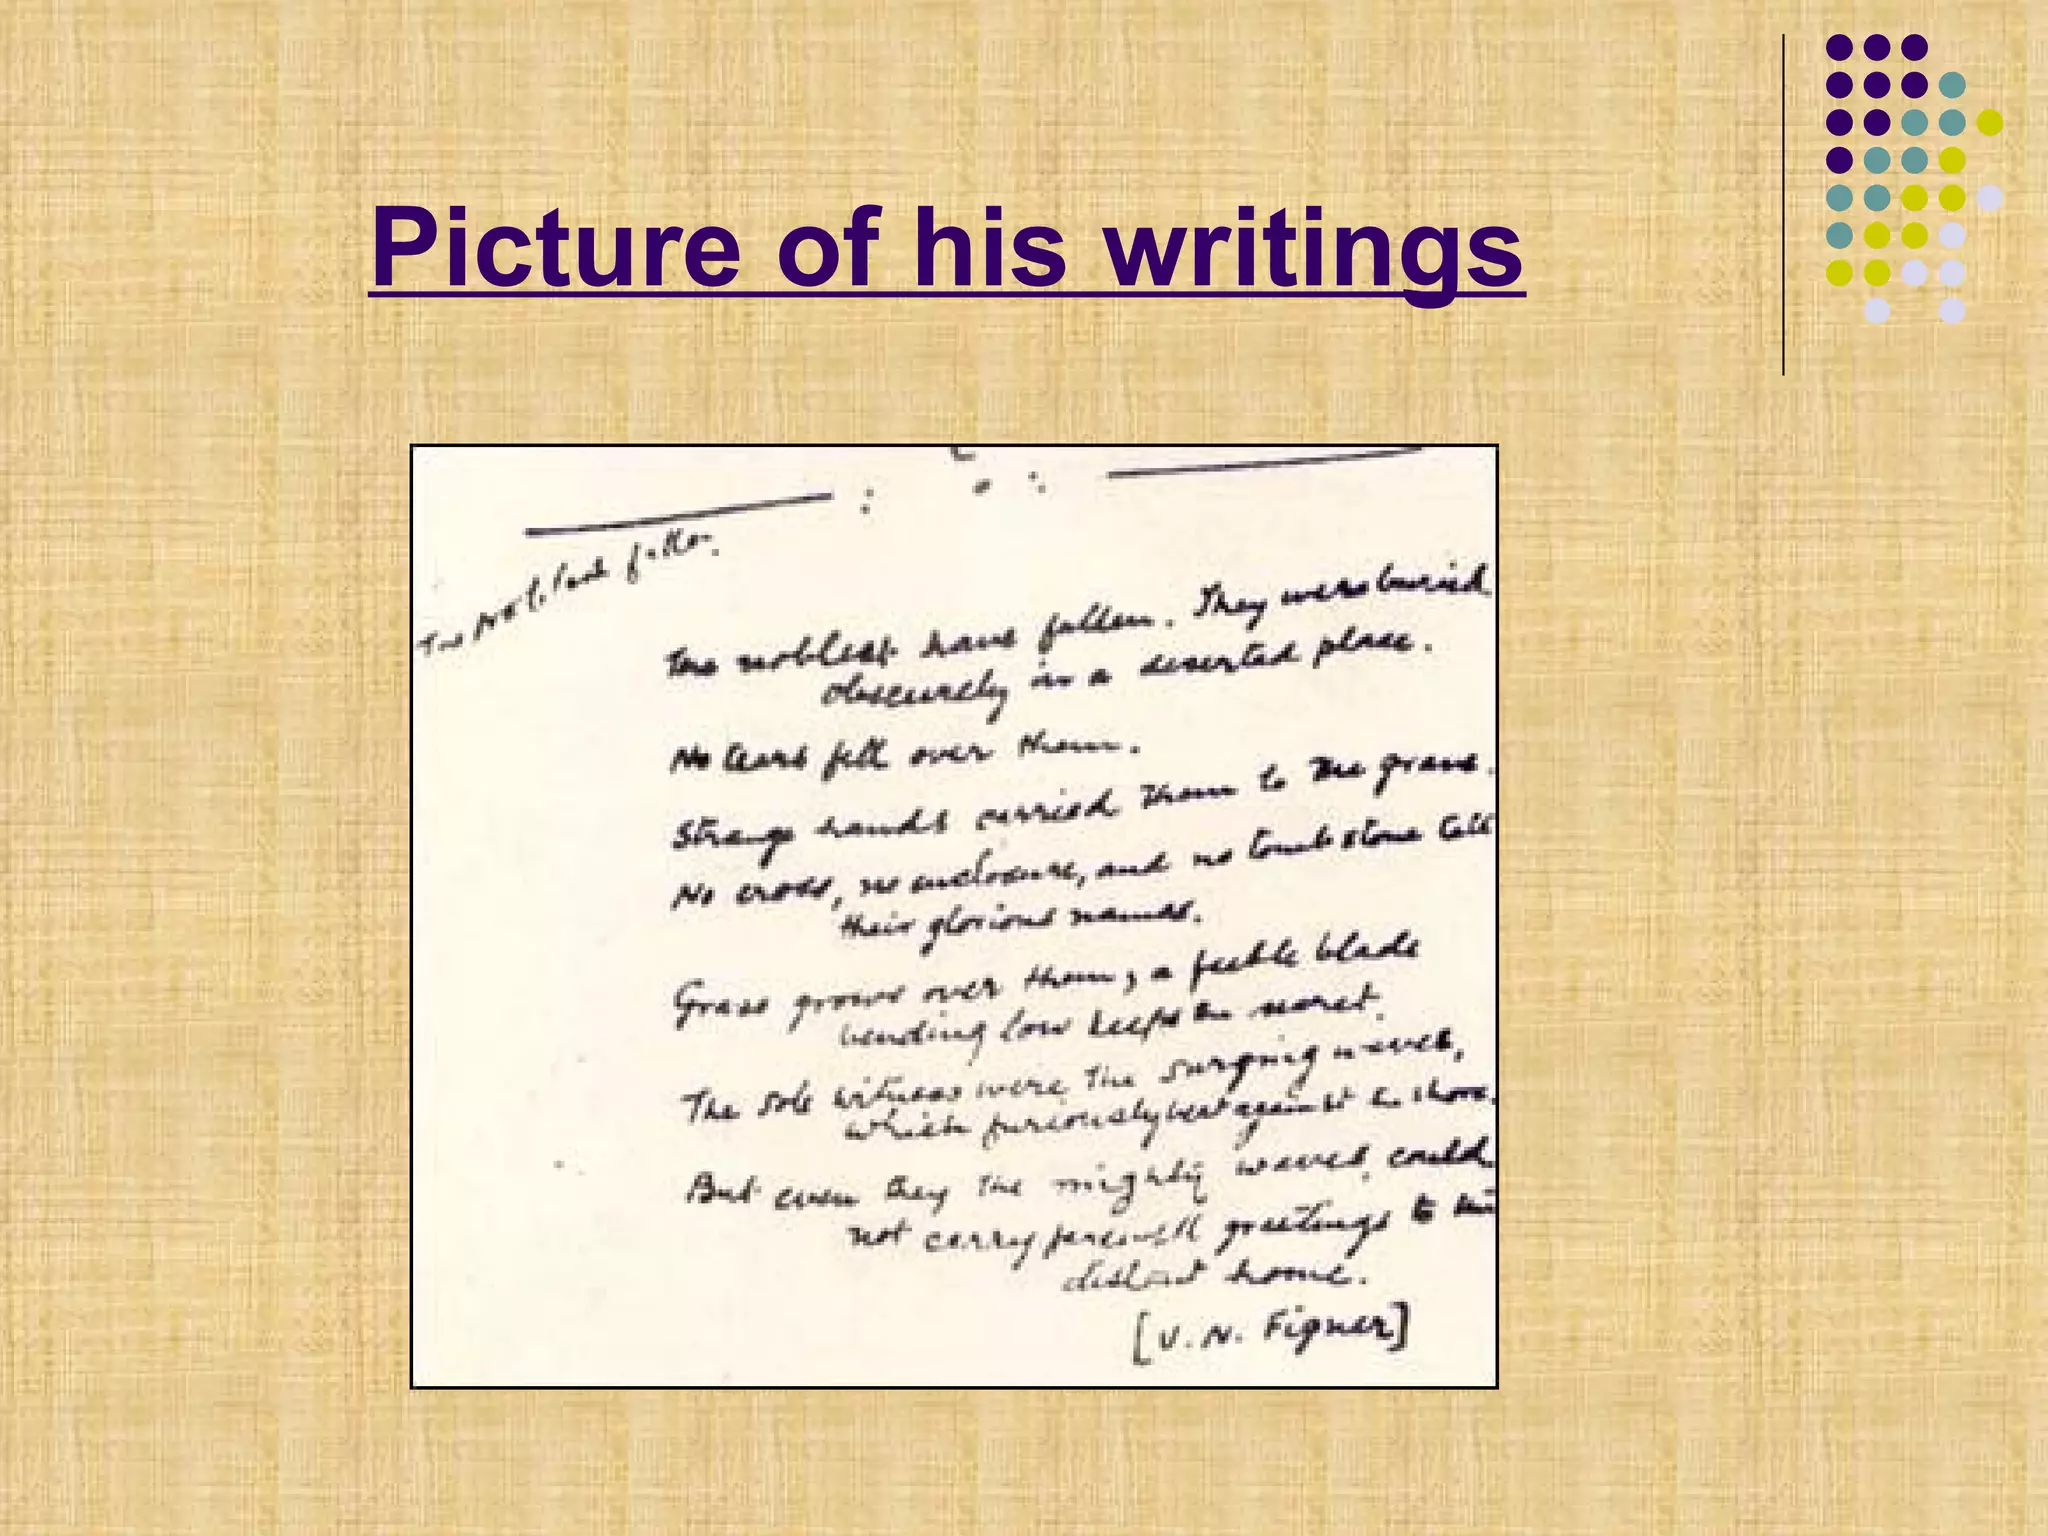 Picture of his writings
The Noblest fallen.
The noblest have fallen. They were buried
obscurely in a deserted place.
No tears fell over them.
Strange hands carried them to the grave.
No cross, no enclosure, and no tombstone tell
their glorious names.
Grass grows over them, a feeble blade
bending low keeps the secret.
The sole witness were the surging waves,
which furiously beat against the shore.
But even they the mighty waves, could
not carry farewell greetings to the
distant home.
[V. N. Figner]